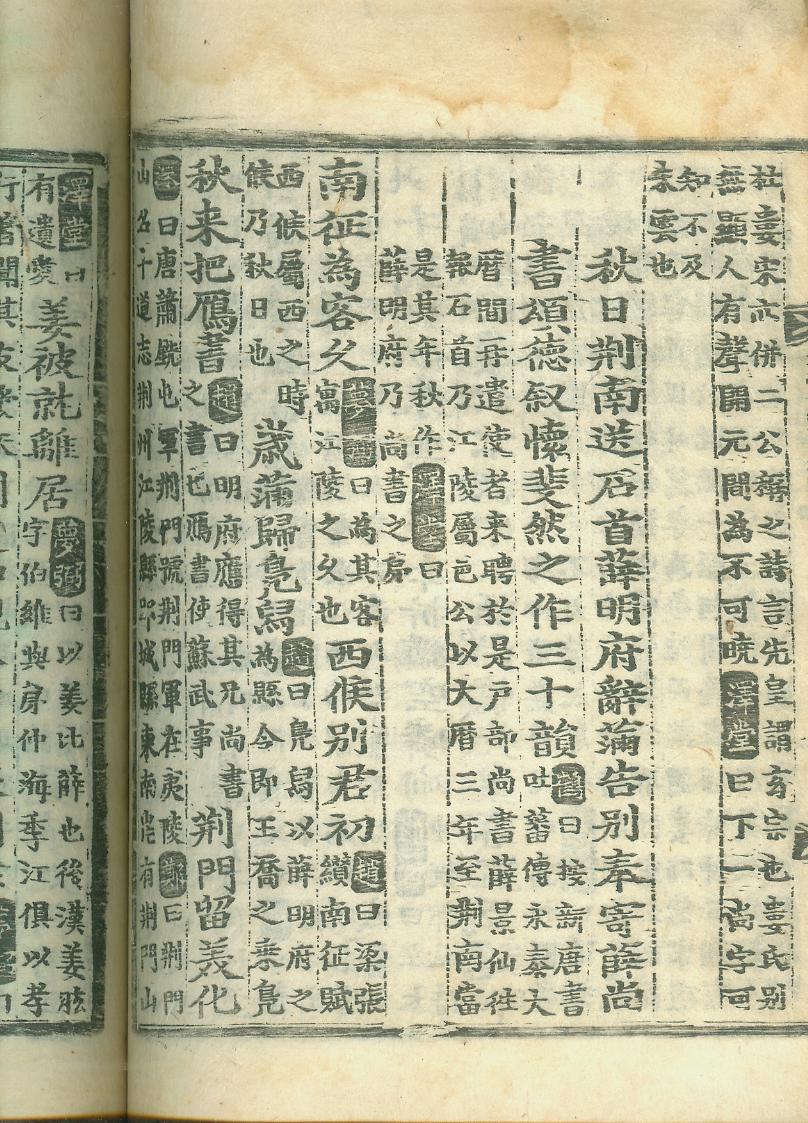 杜妻宋亦併二公辯之諸言先皇謂玄宗也妻氏別
無顯人有聲開元間為不可曉澤堂曰下一尚字可
知不及
秦雲也
秋日荆南送石首薛明府辭滿告別奉寄薛尚
書頌德叙懷斐然之作三十韻
鶴曰按新唐書
吐蕃傳永泰大
曆間再遣使者来聘於是戶部尚書薛景仙往
報石首乃江陵屬邑公以大曆三年至荆南當
是其年秋作澤堂曰
薛明府乃尚書之弟
南征為客久
夢弼曰為其客
寓江陵之久也
西候別君初
趙曰梁張
纘南征賦
西候屬西之時
候乃秋日也
歲滿歸鳧舃
趙曰鳧舃以薛明府之
為縣令即王喬之乘鳧
秋来把鴈書
趙曰明府應得其兄尚書
之書也鴈書使蘇武事
荆門留美化
洙曰唐蕭銑屯軍荆門號荆門軍在夷陵曰荆門
山名十道志荆州江陵縣郢城縣東南皆有荆門山
澤堂曰
有遺愛
姜被就離居
夢弼曰以姜比薛也後漢姜肱
字伯維與弟仲海季江俱以孝
行著聞其友愛天